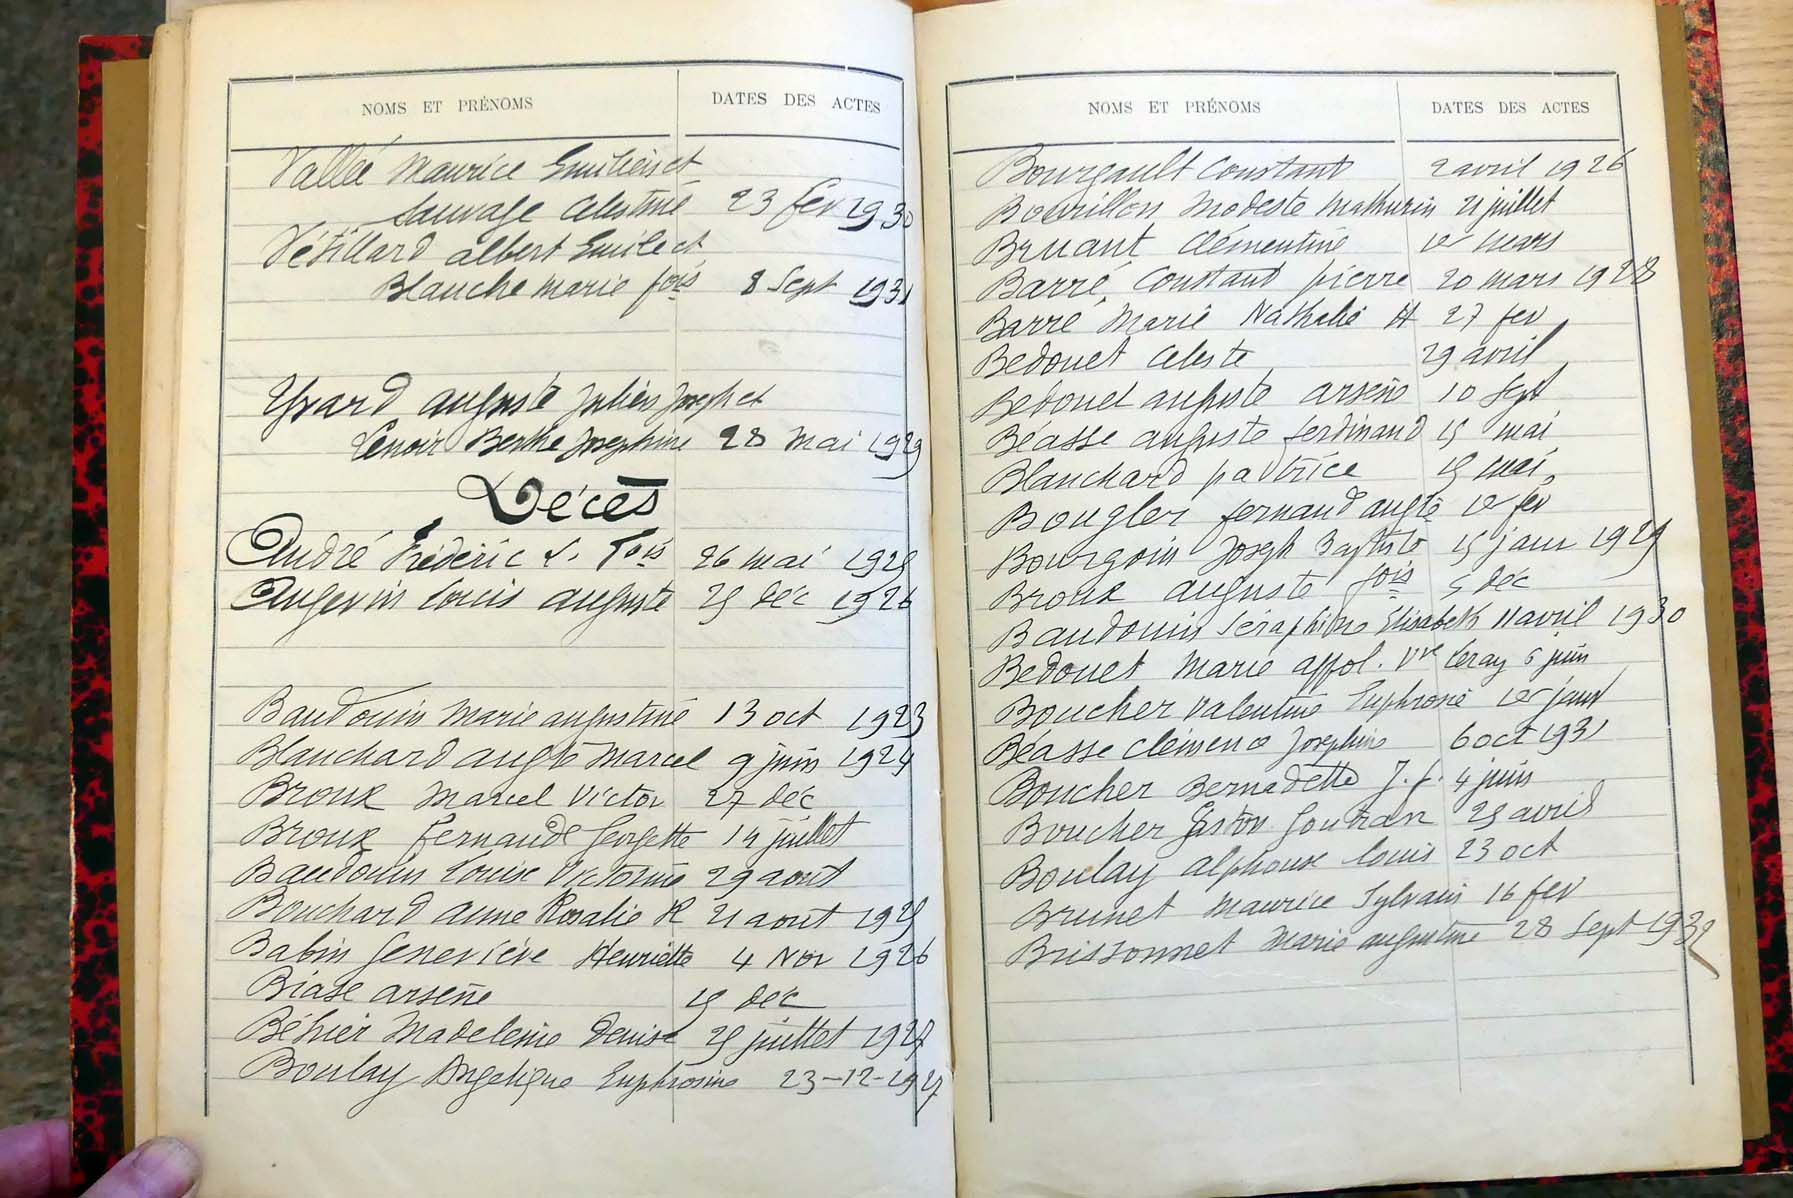 NOMS ET PRÉNOMS DATES DES ACTES
Vallée Maurice Emilien et
Sauvage Celestine 23 fev 1930
Vétillard albert Emile et
Blanche marie fois 8 Sept 1931
Yvard auguste Julien Joseph et
Lenoir Berthe Josephine 28 Mai 1929
Décès
André Fréderic Fois 26 mai 1925
Angevin Louis auguste 25 déc 1926
Baudouin Marie augustine 13 oct 1923
Blanchard augte Marcel 9 juin 1924
Broux Marcel Victor 27 déc
Broux Fernande Georgette 14 juillet
Baudouin Louise Victorine 29 aout
Bouchard anne Rosalie R 21 aout 1925
Babin Geneviève Henriette 4 Nov 1926
Béase arsène 15 déc
Béhier Madeleine Denise 25 juillet 1927
Boulay Angelique Euphrosine 23-12-1927
NOMS ET PRÉNOMS DATES DES ACTES
Bourgault Constant 2 avril 1926
Bourillon Modeste Mathurin 21 juillet
Bruant Clémentine 1er mars
Barré Constant pierre 20 mars 1928
Barré Marie Nathalie H 27 fev
Bedouet Celeste 29 avril
Bedouet auguste arsène 10 Sept
Béasse auguste ferdinand 15 mai
Blanchard patrice 15 mai
Bougler fernand augte 1er fev
Bourgoin Joseph Baptiste 15 janv 1929
Broux auguste fois 5 déc
Baudouin Séraphine Elisabeth 11 avril 1930
Bedouet Marie appol. Vve Leray 6 juin
Boucher Valentine Euphrosie 1er janv
Béasse Clémence Josephine 6 oct 1931
Boucher Bernadette J. f. 4 juin
Boucher Gaston Gontran 25 avril
Boulay alphonse Louis 23 oct
Brunet Maurice Sylvain 16 fev
Brissonnet Marie augustine 28 Sept 1932